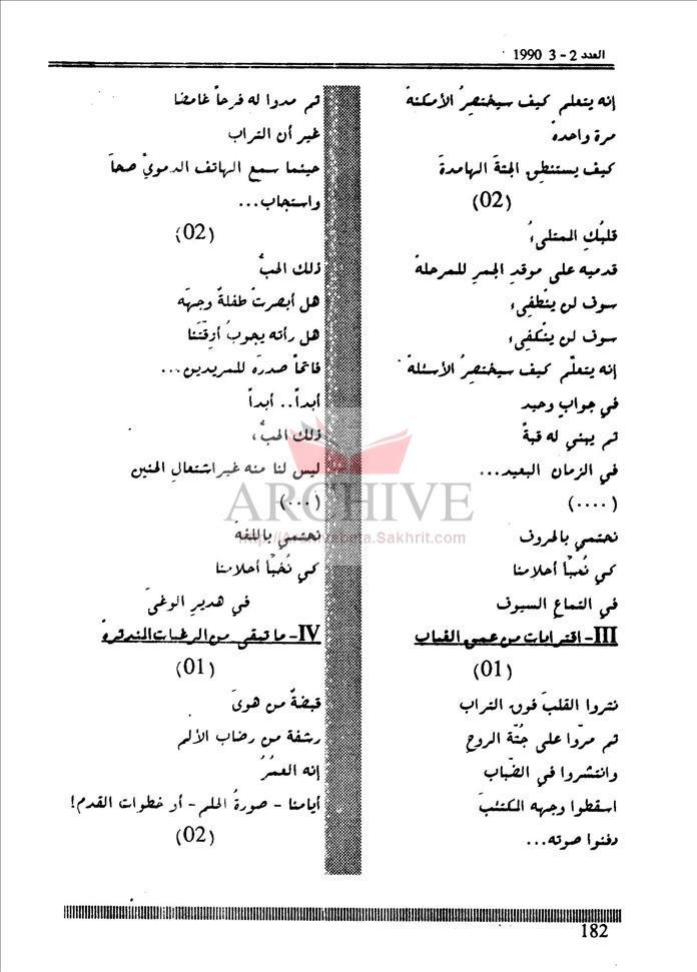 العدد 2 - 3 1990
إنه يتعلم كيف سيختصرُ الأمكنةْ
مرة واحدةْ
كيف يستنطق الجثةَ الهامدةَ
(02)
قلبُكِ الممتلىءُ
قدميه على موقدِ الجمرِ للمرحلةْ
سوف لن ينْطفِىء
سوف لن ينْكفِىء
إنه يتعلّم كيف سيختصرُ الأسئلةْ
في جوابٍ وحيد
ثم يبني له قبةً
في الزمان البعيد...
(....)
نحتمي بالحروف
كي نُعبّأ أحلامنا
في التماع السيوف
III- اقترابات من عمق الضباب
(01)
نثروا القلبَ فوق التراب
ثم مرّوا على جُثّة الروحِ
وانتشروا في الضّباب
اسقطوا وجهه المكتئبَ
دفنوا صوته...
ثم مدوا له فرحاً غامضا
غير أن التراب
حينما سمع الهاتف الدمويّ صحاَ
واستجاب...
(02)
ذلك الحبُّ
هل أبصرتْ طفلةٌ وجهَه
هل رأته يجوبُ أزقّتَنا
فاتحاً صدرَه للمريدين...
أبداً.. أبداً
ذلك الحبُّ،
ليس لنا منه غير اشتعالِ الحنين
(...)
نحتمي باللغة
كي نُخبّأ أحلامنا
في هديرِ الوغىَ
IV- ما تبقى من الرغبات المندثرة
(01)
قبضةٌ من هوىَ
رشفة من رضاب الألم
إنه العمُرُ
أيامنا - صورةُ الحلم - أو خطوات القدم!
(02)
182
ARCHIVE
http://Archivebeta.Sakhrit.com